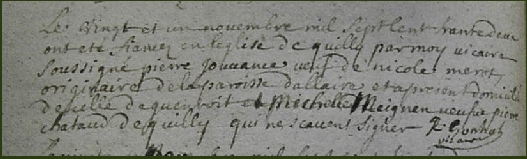 Le vingt et un novembre mil sept cent trante deux
ont eté fiancez en leglise de quilly par moy vicaire
soussigné pierre Jouvance veuf de nicole meroy
originaire de la paroisse dallaire et apresent domicilié
de celle de et Michelle Meignen veufve pierre
chataud de quilly qui ne scavent signer
vicaire